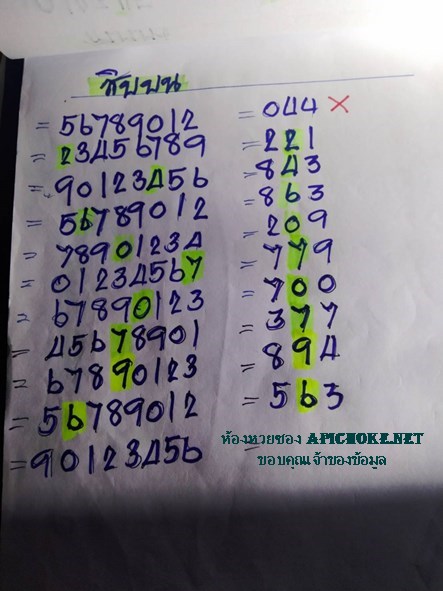 สิบบน
= 56789012 = 044 ×
23456789 = 221
= 90123456 = 843
= 56789012 = 863
= 78901234 = 209
= 01234567 = 779
= 67890123 = 700
= 45678901 = 377
= 67890123 = 894
= 56789012 = 563
= 90123456 =
ห้องหวยซอง APICHOKE.NET
ขอบคุณเจ้าของข้อมูล